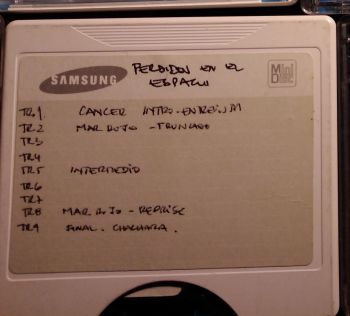 PERDIDOS EN EL
ESPACIO
SAMSUNG
Mini
Disc
TR.1 CANCER INTRO-
TR.2 MAR ROJO - TRUNCADO
TR3
TR4
TR5 INTERMEDIO
TR6
TR7
TR8 MAR ROJO - REPRISE
TR9 FINAL. CHACHARA.